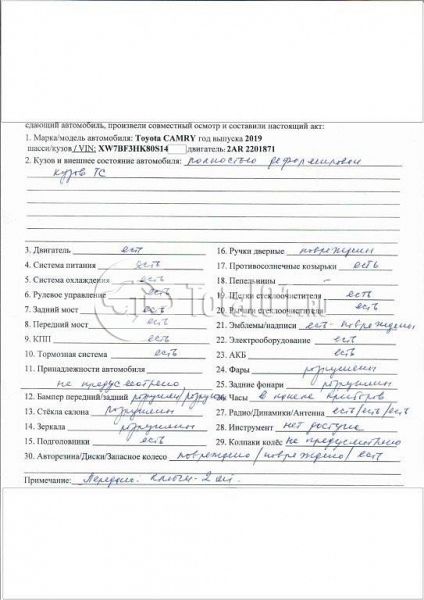 сдающий автомобиль, произвели совместный осмотр и составили настоящий акт:
1. Марка/модель автомобиля: Toyota CAMRY год выпуска 2019
шасси/кузов / VIN: XW7BF3HK80S14 двигатель: 2AR 2201871
2. Кузов и внешнее состояние автомобиля: полностью деформирован
кузов ТС
3. Двигатель есть
4. Система питания есть
5. Система охлаждения есть
6. Рулевое управление есть
7. Задний мост есть
8. Передний мост есть
9. КПП есть
10. Тормозная система есть
11. Принадлежности автомобиля
не предусмотрено
12. Бампер передний/задний разрушен/разрушен
13. Стёкла салона разрушены
14. Зеркала разрушены
15. Подголовники есть
16. Ручки дверные повреждены
17. Противосолнечные козырьки есть
18. Пепельницы -
19. Щетки стеклоочистителя есть
20. Рычаги стеклоочистителя есть
21. Эмблемы/надписи есть - повреждены
22. Электрооборудование есть
23. АКБ есть
24. Фары разрушены
25. Задние фонари разрушены
26. Часы в панели приборов
27. Радио/Динамики/Антенна есть/есть/есть
28. Инструмент нет доступа
29. Колпаки колёс не предусмотрено
30. Авторезина/Диски/Запасное колесо повреждено / повреждено / есть
Примечание: Передано. Ключи - 2 шт.
Total01.ru